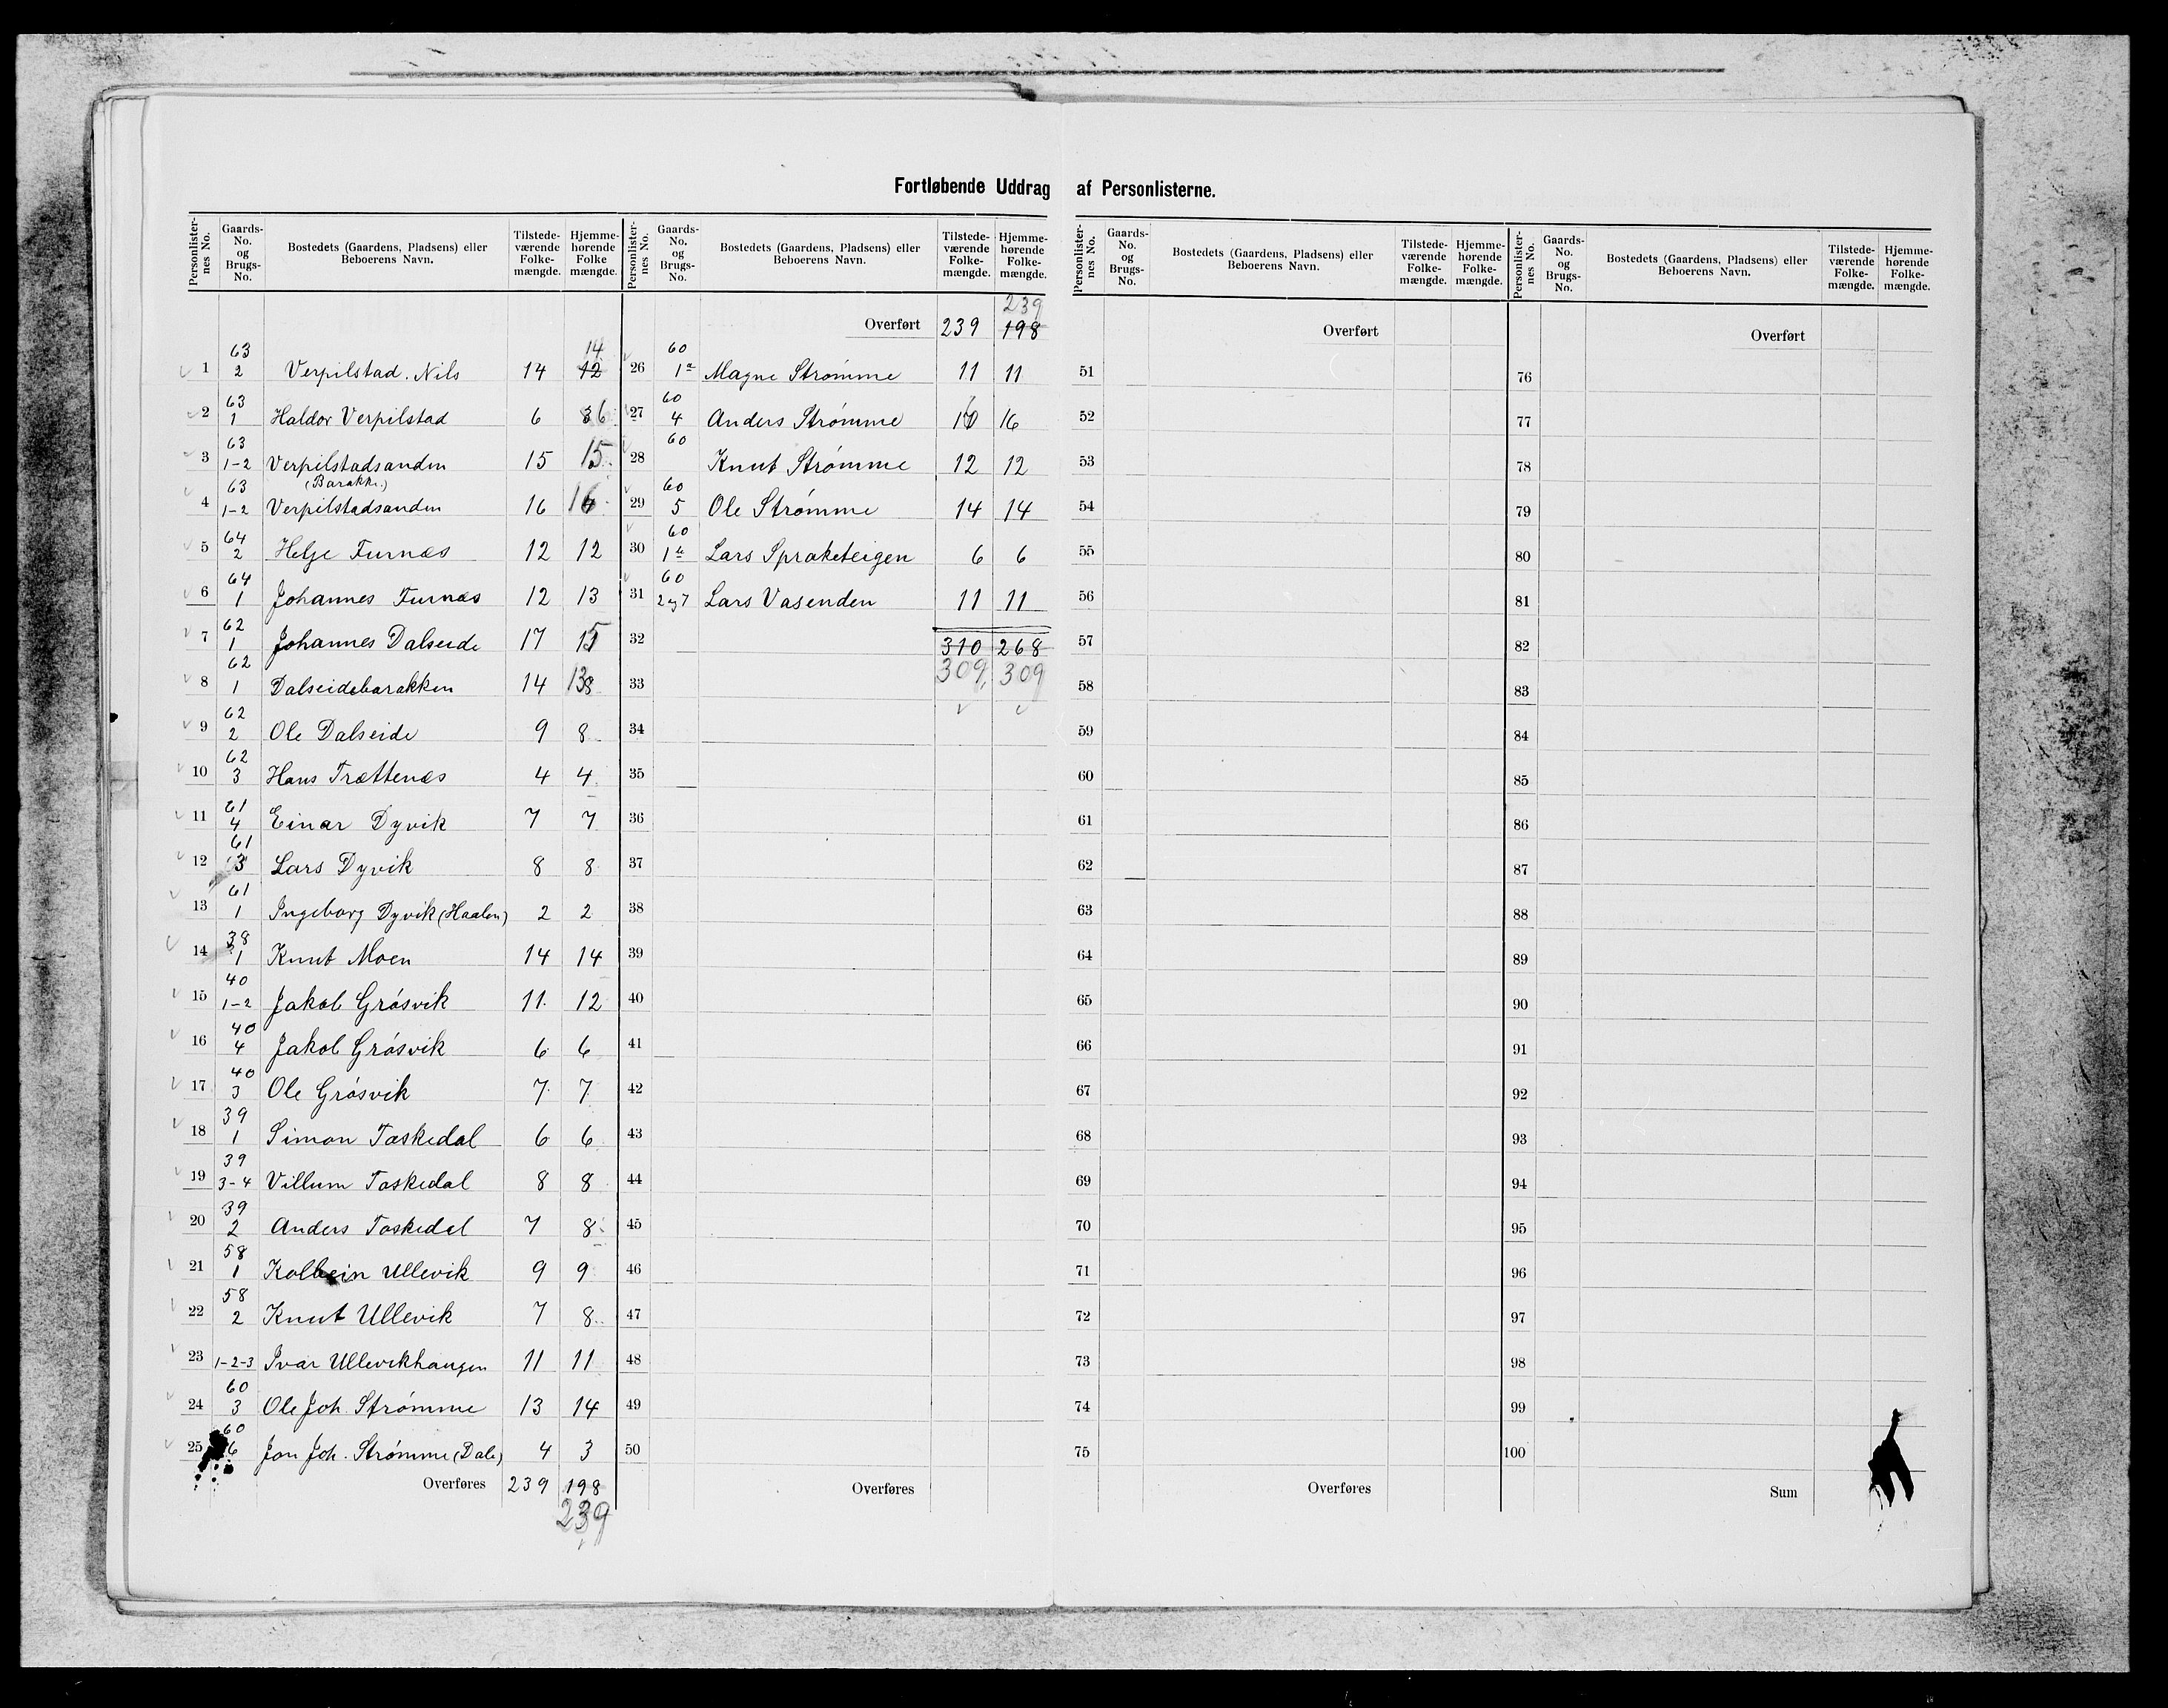 Fortløbende Uddrag af Personlisterne.
Personlister-nes No. | Gaards-No. og Brugs-No. | Bostedets (Gaardens, Pladsens) eller Beboerens Navn. | Tilstede-værende Folke-mængde. | Hjemme-hørende Folke mængde.
1 | 63 2 | Verpilstad. Nils | 14 | 12 14
2 | 63 1 | Haldor Verpilstad | 6 | 6
3 | 63 1-2 | Verpilstadsanden (Barakke.) | 15 | 15
4 | 63 1-2 | Verpilstadsanden | 16 | 16
5 | 64 2 | Helge Furnæs | 12 | 12
6 | 64 1 | Johannes Furnæs | 12 | 13
7 | 62 1 | Johannes Dalseide | 17 | 15
8 | 62 1 | Dalseidebarakken | 14 | 13
9 | 62 2 | Ole Dalseide | 9 | 8
10 | 62 3 | Hans Trættenæs | 4 | 4
11 | 61 4 | Einar Dyvik | 7 | 7
12 | 61 3 | Lars Dyvik | 8 | 8
13 | 61 1 | Ingeborg Dyvik (Haalen) | 2 | 2
14 | 38 1 | Knut Moen | 14 | 14
15 | 40 1-2 | Jakob Grøsvik | 11 | 12
16 | 40 4 | Jakob Grøsvik | 6 | 6
17 | 40 3 | Ole Grøsvik | 7 | 7
18 | 39 1 | Simon Taskedal | 6 | 6
19 | 39 3-4 | Villum Taskedal | 8 | 8
20 | 39 2 | Anders Taskedal | 7 | 8
21 | 58 1 | Kolbein Ullevik | 9 | 9
22 | 58 2 | Knut Ullevik | 7 | 8
23 | 1-2-3 | Ivar Ullevikhaugen | 11 | 11
24 | 60 3 | Ole Joh. Strømme | 13 | 14
25 | 60 6 | Jon Joh. Strømme (Dale) | 4 | 3
Overføres | 239 | 198
239
Personlister-nes No. | Gaards-No. og Brugs-No. | Bostedets (Gaardens, Pladsens) eller Beboerens Navn. | Tilstede-værende Folke-mængde. | Hjemme-hørende Folke-mængde.
239
Overført | 239 | 198
26 | 60 1a | Magne Strømme | 11 | 11
27 | 60 4 | Anders Strømme | 16 | 16
28 | 60 | Knut Strømme | 12 | 12
29 | 60 5 | Ole Strømme | 14 | 14
30 | 60 | Lars Spraketeigen | 6 | 6
31 | 60 2 og 7 | Lars Vasenden | 11 | 11
32 | 310 | 268
33 | 309 | 309
34
35
36
37
38
39
40
41
42
43
44
45
46
47
48
49
50
Overføres
Personlister-nes No. | Gaards-No. og Brugs-No. | Bostedets (Gaardens, Pladsens) eller Beboerens Navn. | Tilstede-værende Folke-mængde. | Hjemme-hørende Folke-mængde.
Overført
51
52
53
54
55
56
57
58
59
60
61
62
63
64
65
66
67
68
69
70
71
72
73
74
75
Overføres
Personlister-nes No. | Gaards-No. og Brugs-No. | Bostedets (Gaardens, Pladsens) eller Beboerens Navn. | Tilstede-værende Folke-mængde. | Hjemme-hørende Folke-mængde.
Overført
76
77
78
79
80
81
82
83
84
85
86
87
88
89
90
91
92
93
94
95
96
97
98
99
100
Sum